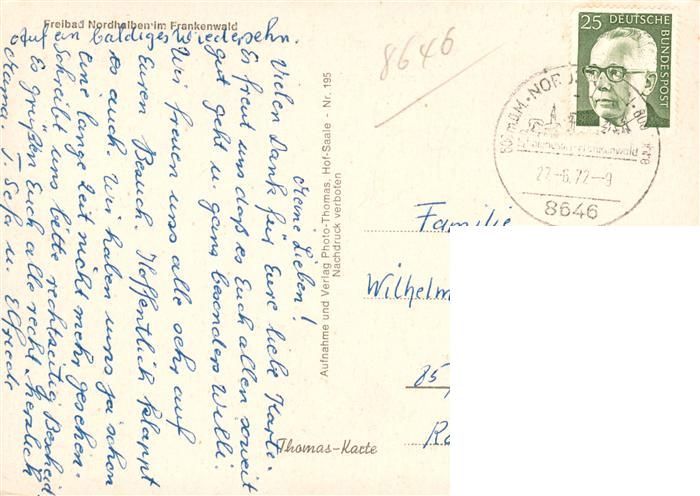 Freibad Nordhalben im Frankenwald
Meine Lieben!
Vielen Dank für Eure liebe Karte.
Es freut uns daß es Euch allen soweit
gut geht u. ganz besonders Willi.
Wir freuen uns alle sehr auf
Euren Besuch. Hoffentlich klappt
es auch. Wir haben uns ja schon
eine lange Zeit nicht mehr gesehen.
Schreibt uns bitte rechtzeitig Bescheid
Es grüßen Euch alle recht herzlich
Mama, u. Elfriede
Auf ein baldiges Wiedersehn.
Aufnahme und Verlag Photo-Thomas, Hof-Saale - Nr. 195
Nachdruck verboten
Thomas-Karte
8646
25 DEUTSCHE
BUNDESPOST
22-6.72-9
8646
Familie
Wilhelm
85